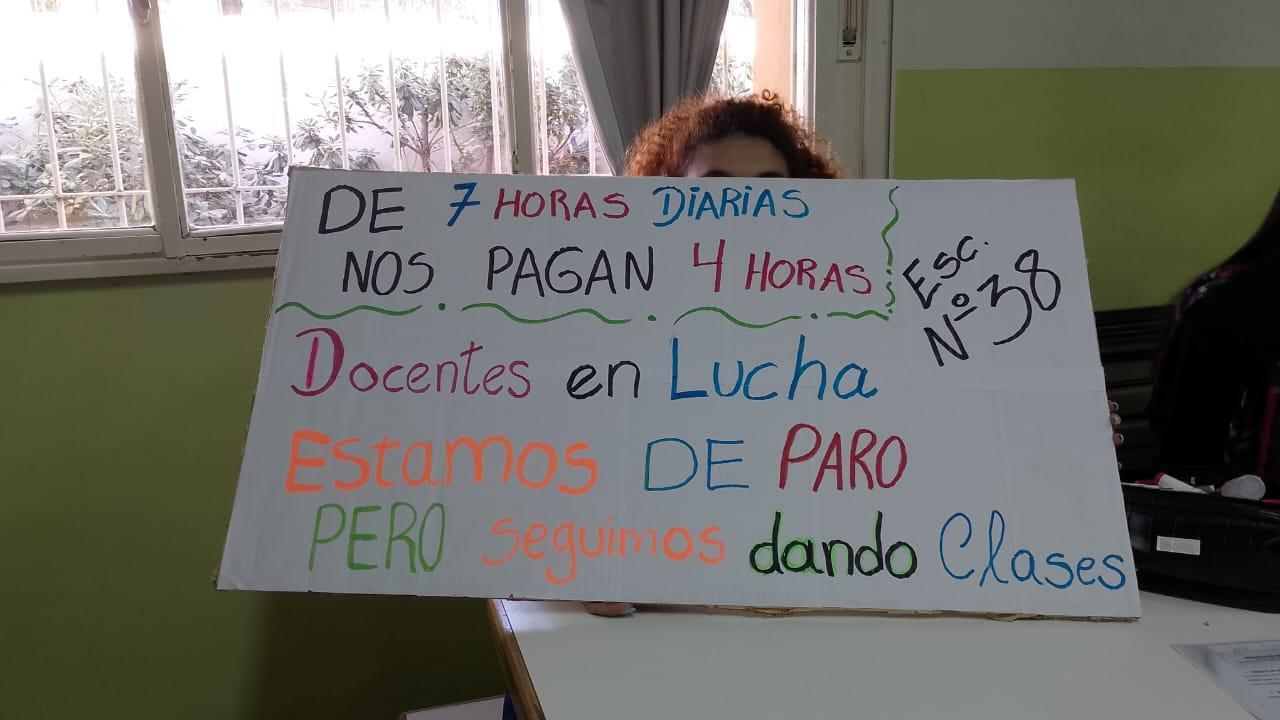 DE 7 HORAS DiARIAS
NOS PAGAN 4 HORAS
Esc.
Nº 38
Docentes en Lucha
Estamos DE PARO
PERO seguimos dando Clases